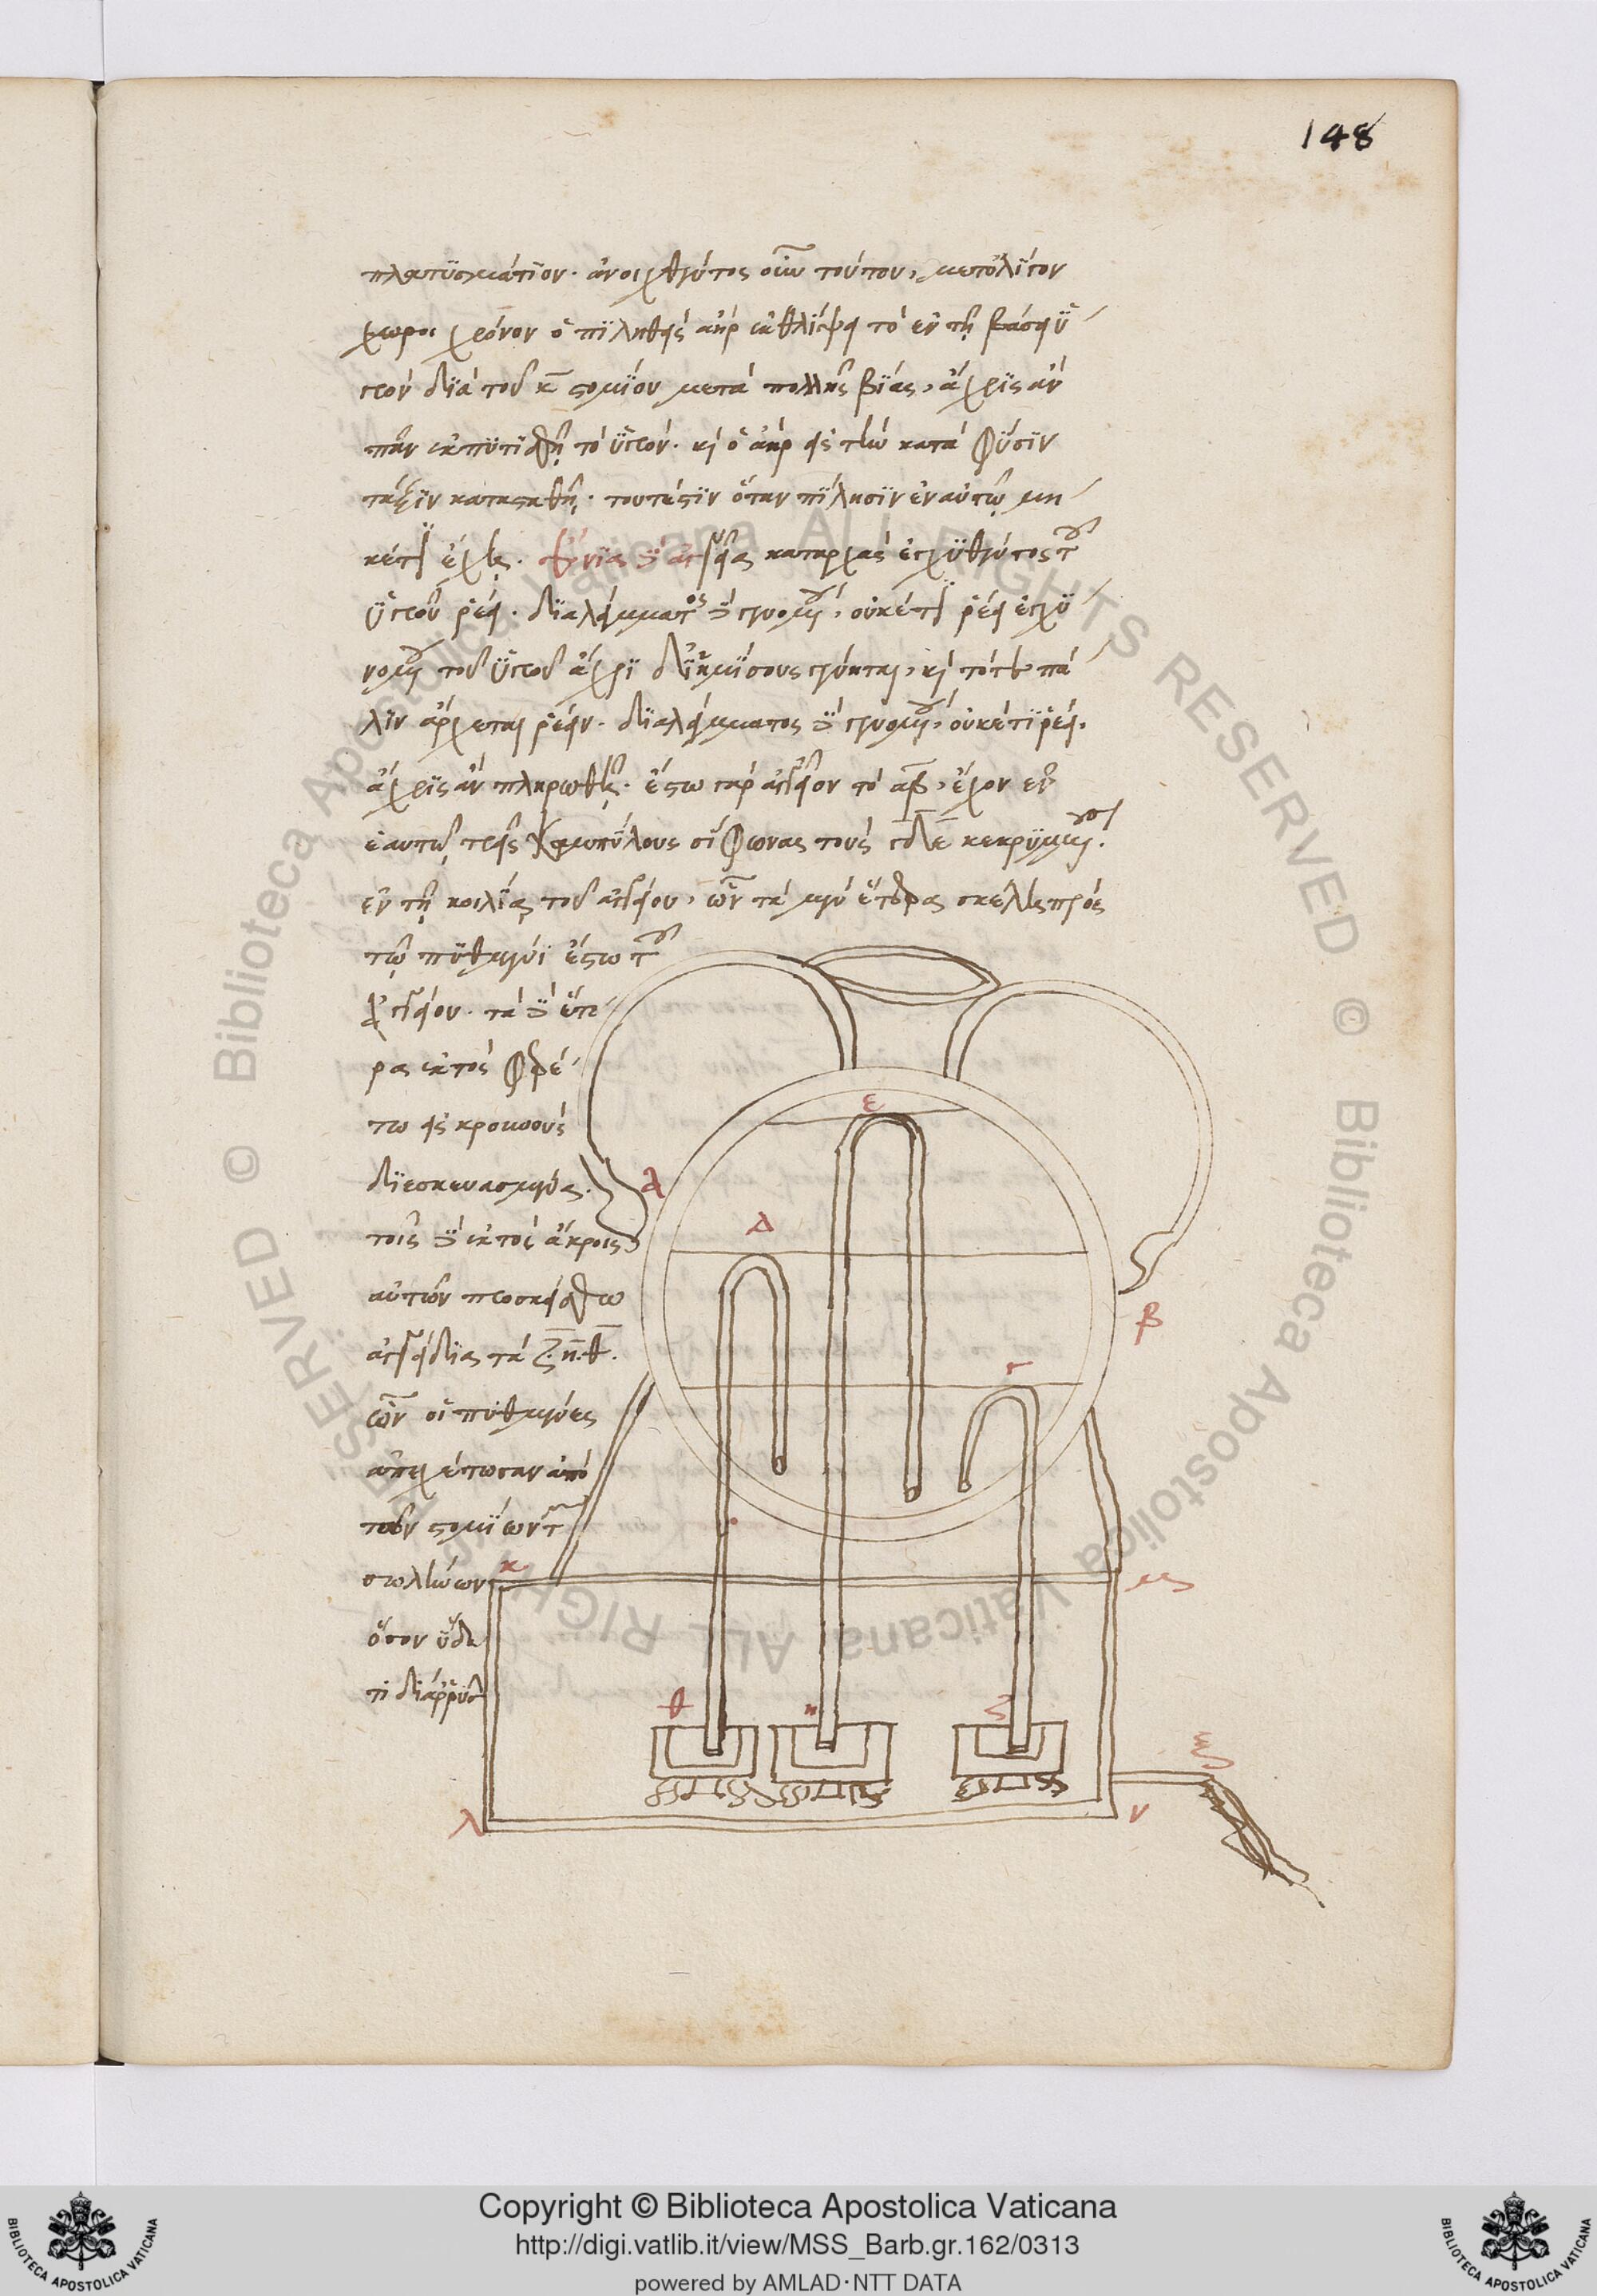 148
πλατυσμάτιον. ἀνοιχθέντος οὖν τούτου, μετ' ὀλίγον
χρόνον ὁ πιληθεὶς ἀὴρ ἐκθλίψει τὸ ἐν τῇ βάσει ὑ
γρὸν διὰ τοῦ κ̅ στομίου μετὰ πολλῆς βίας, ἄχρις ἂν
πᾶν ἐκπυτισθῇ τὸ ὑγρόν. καὶ ὁ ἀὴρ εἰς τὴν κατὰ φύσιν
τάξιν κατασταθῇ. τουτέστιν ὅταν πίλησιν ἐν αὑτῷ μη
κέτι ἔχῃ. ἔνια δὲ ἀγγεῖα καταρχὰς ἐγχυθέντος τοῦ
ὑγροῦ ῥέει. διαλείμματος δὲ γενομένου, οὐκέτι ῥέει ἐγχυ
νομένου τοῦ ὑγροῦ ἄχρι δι' ἡμίσους γένηται, καὶ τότε πά
λιν ἄρχεται ῥέειν. διαλείμματος δὲ γενομένου, οὐκέτι ῥέει,
ἄχρις ἂν πληρωθῇ. ἔστω γὰρ ἀγγεῖον τὸ αβ, ἔχον ἐν
ἑαυτῷ τρεῖς καμπύλους σίφωνας τοὺς γδε κεκρυμμένους
ἐν τῇ κοιλίᾳ τοῦ ἀγγείου, ὧν τὰ μὲν ἕτερα σκέλη πρὸς
τῷ πυθμένι ἔστω τοῦ
ἀγγείου. τὰ δὲ ἕτε
ρα ἐκτὸς φερέ
τω εἰς κρουνοὺς
διεσκευασμένα.
τοῖς δὲ ἐκτὸς ἄκροις
αὐτῶν προσκείσθω
ἀγγείδια τὰ ζ̅.η̅.θ̅.
ὧν οἱ πυθμένες
ἀπεχέτωσαν ἀπὸ
τῶν στομίων τῶν
σωλήνων
ὅσον ὕδα
τι διάρρυσιν
ε
α
δ
β
γ
κ
μ
θ
η
ζ
ξ
λ
ν
© Biblioteca Apostolica Vaticana ALL RIGHTS RESERVED © Biblioteca Apostolica Vaticana ALL RIGHTS RESERVED
Copyright © Biblioteca Apostolica Vaticana
http://digi.vatlib.it/view/MSS_Barb.gr.162/0313
powered by AMLAD·NTT DATA
BIBLIOTECA APOSTOLICA VATICANA
BIBLIOTECA APOSTOLICA VATICANA